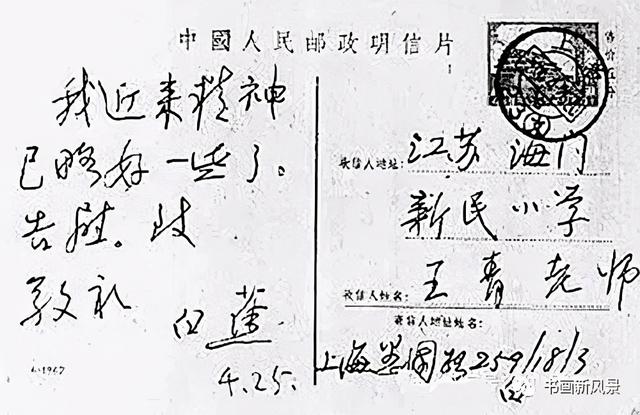 中國人民邮政明信片
我近来精神
已略好一些了。
告慰。致
敬礼
白蕉
4.25.
收信人地址:江苏海门
新民小学
收信人姓名:王青老师
寄信人地址姓名:
上海愚園路259/18/3
白
书画新风景